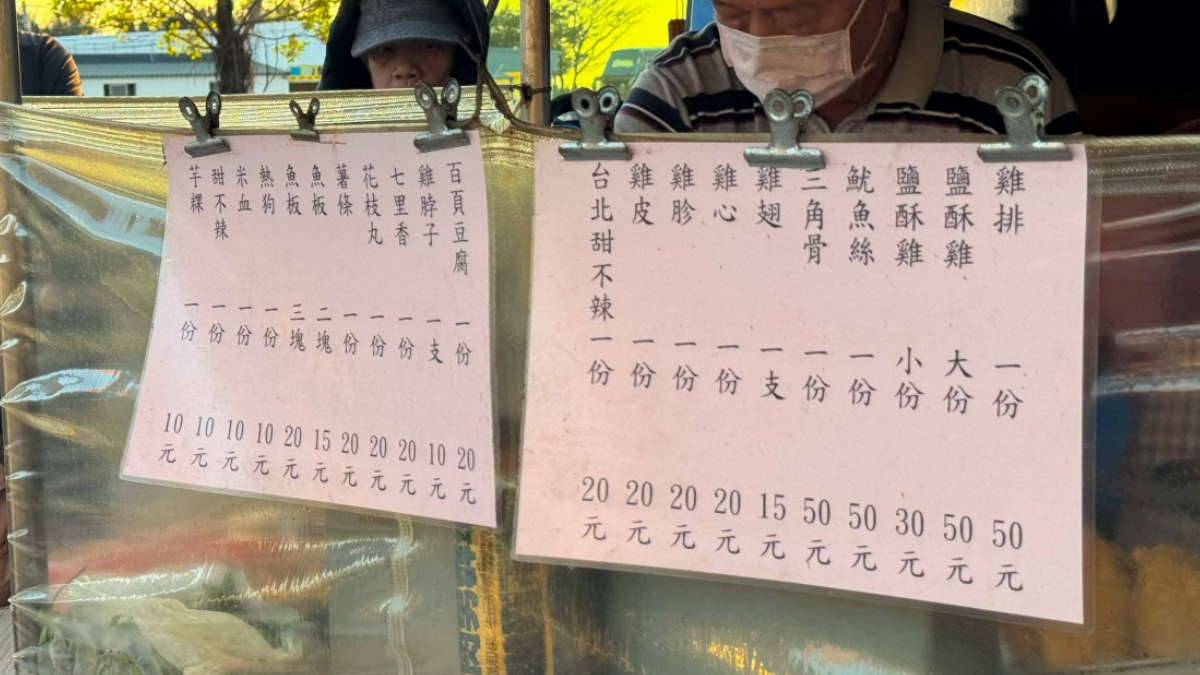 雞排 一份 50元
鹽酥雞 大份 50元
鹽酥雞 小份 30元
魷魚絲 一份 50元
三角骨 一份 50元
雞翅 一支 15元
雞心 一份 20元
雞胗 一份 20元
雞皮 一份 20元
台北甜不辣 一份 20元
百頁豆腐 一份 20元
雞脖子 一支 10元
七里香 一份 20元
花枝丸 一份 20元
薯條 一份 20元
魚板 二塊 15元
魚板 三塊 20元
熱狗 一份 10元
米血 一份 10元
甜不辣 一份 10元
芋粿 一份 10元